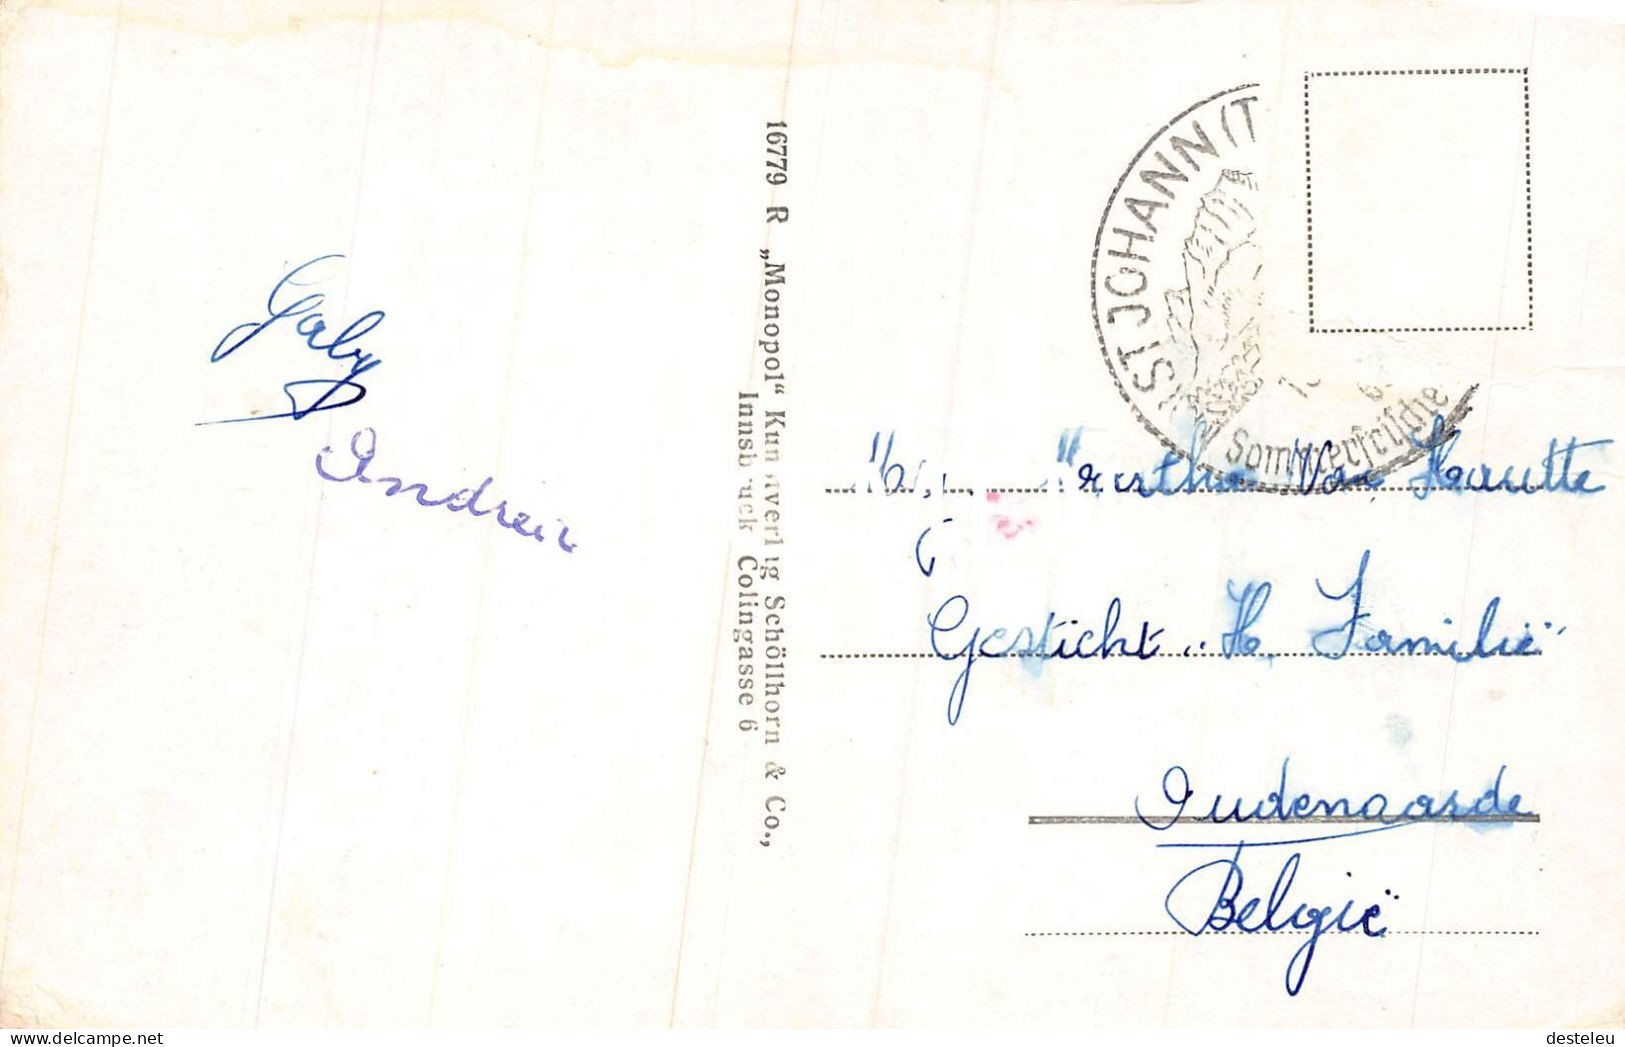 Gaby
Andreïr
16779 R „Monopol“ Kun verl g Schöllhorn & Co.,
Innsb uck Colingasse 6
ST JOHANN (T
Sommerfrische
Martha Van Hautte
Gesticht „H. Familie“
Oudenaarde
België
delcampe.net
desteleu